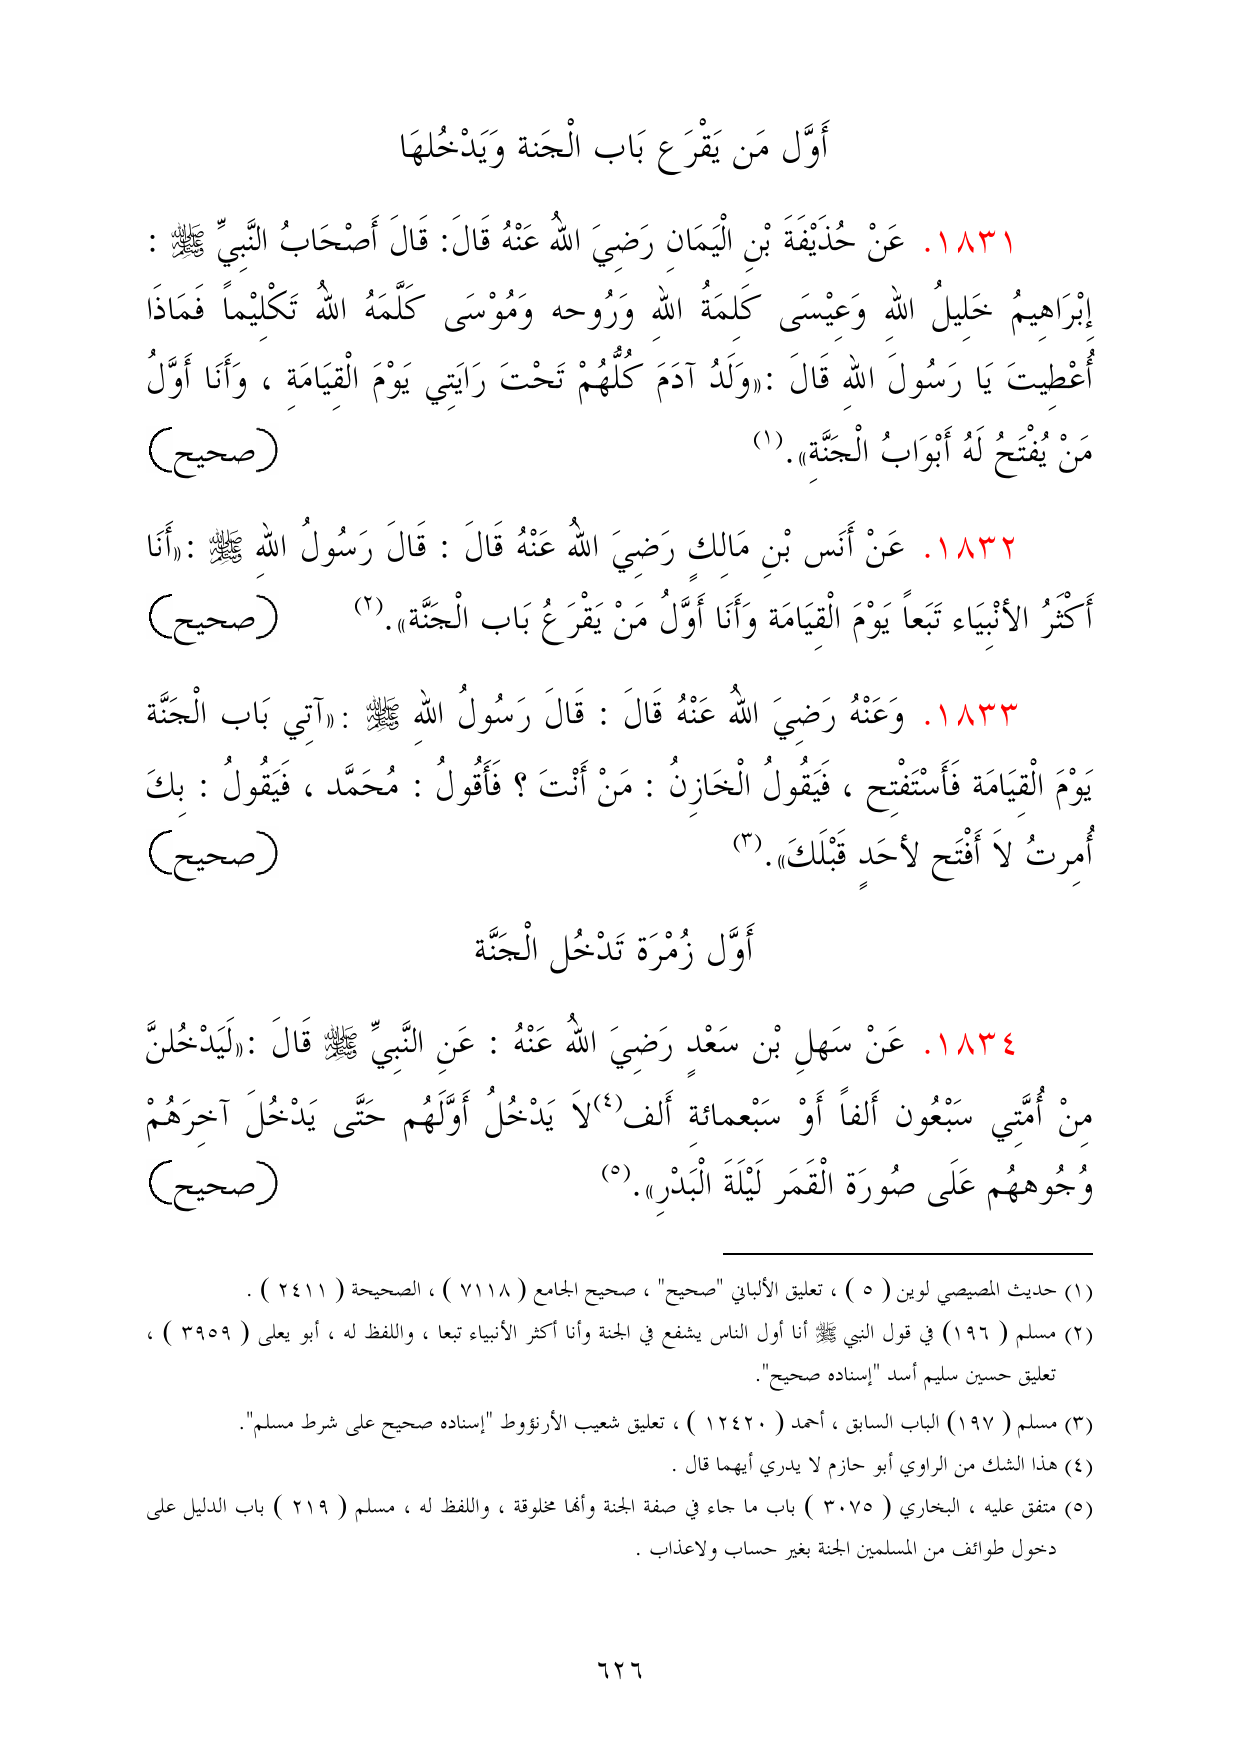 أَوَّل مَن يَقْرَع بَاب الْجَنة وَيَدْخُلهَا
١٨٣١. عَنْ حُذَيْفَةَ بْنِ الْيَمَانِ رَضِيَ اللهُ عَنْهُ قَالَ: قَالَ أَصْحَابُ النَّبِيِّ ﷺ :
إِبْرَاهِيمُ خَلِيلُ اللهِ وَعِيْسَى كَلِمَةُ اللهِ وَرُوحه وَمُوْسَى كَلَّمَهُ اللهُ تَكْلِيْماً فَمَاذَا
أُعْطِيتَ يَا رَسُولَ اللهِ قَالَ :«وَلَدُ آدَمَ كُلُّهُمْ تَحْتَ رَايَتِي يَوْمَ الْقِيَامَةِ ، وَأَنَا أَوَّلُ
مَنْ يُفْتَحُ لَهُ أَبْوَابُ الْجَنَّةِ».(١) (صحيح)
١٨٣٢. عَنْ أَنَس بْنِ مَالِكٍ رَضِيَ اللهُ عَنْهُ قَالَ : قَالَ رَسُولُ اللهِ ﷺ :«أَنَا
أَكْثَرُ الأنْبِيَاء تَبَعاً يَوْمَ الْقِيَامَة وَأَنَا أَوَّلُ مَنْ يَقْرَعُ بَاب الْجَنَّة».(٢) (صحيح)
١٨٣٣. وَعَنْهُ رَضِيَ اللهُ عَنْهُ قَالَ : قَالَ رَسُولُ اللهِ ﷺ :«آتي بَاب الْجَنَّة
يَوْمَ الْقِيَامَة فَأَسْتَفْتِح ، فَيَقُولُ الْخَازِنُ : مَنْ أَنْتَ ؟ فَأَقُولُ : مُحَمَّد ، فَيَقُولُ : بِكَ
أُمِرتُ لاَ أَفْتَح لأحَدٍ قَبْلَكَ».(٣) (صحيح)
أَوَّل زُمْرَة تَدْخُل الْجَنَّة
١٨٣٤. عَنْ سَهلِ بْن سَعْدٍ رَضِيَ اللهُ عَنْهُ : عَنِ النَّبِيِّ ﷺ قَالَ :«لَيَدْخُلنَّ
مِنْ أُمَّتِي سَبْعُون أَلفاً أَوْ سَبْعمائةِ أَلف(٤)لاَ يَدْخُلُ أَوَّلَهُم حَتَّى يَدْخُلَ آخِرَهُمْ
وُجُوههُم عَلَى صُورَة الْقَمَر لَيْلَةَ الْبَدْرِ».(٥) (صحيح)
(١) حديث المصيصي لوين ( ٥ ) ، تعليق الألباني "صحيح" ، صحيح الجامع ( ٧١١٨ ) ، الصحيحة ( ٢٤١١ ) .
(٢) مسلم ( ١٩٦) في قول النبي ﷺ أنا أول الناس يشفع في الجنة وأنا أكثر الأنبياء تبعا ، واللفظ له ، أبو يعلى ( ٣٩٥٩ ) ،
تعليق حسين سليم أسد "إسناده صحيح".
(٣) مسلم ( ١٩٧) الباب السابق ، أحمد ( ١٢٤٢٠ ) ، تعليق شعيب الأرنؤوط "إسناده صحيح على شرط مسلم".
(٤) هذا الشك من الراوي أبو حازم لا يدري أيهما قال .
(٥) متفق عليه ، البخاري ( ٣٠٧٥ ) باب ما جاء في صفة الجنة وأنها مخلوقة ، واللفظ له ، مسلم ( ٢١٩ ) باب الدليل على
دخول طوائف من المسلمين الجنة بغير حساب ولاعذاب .
٦٢٦